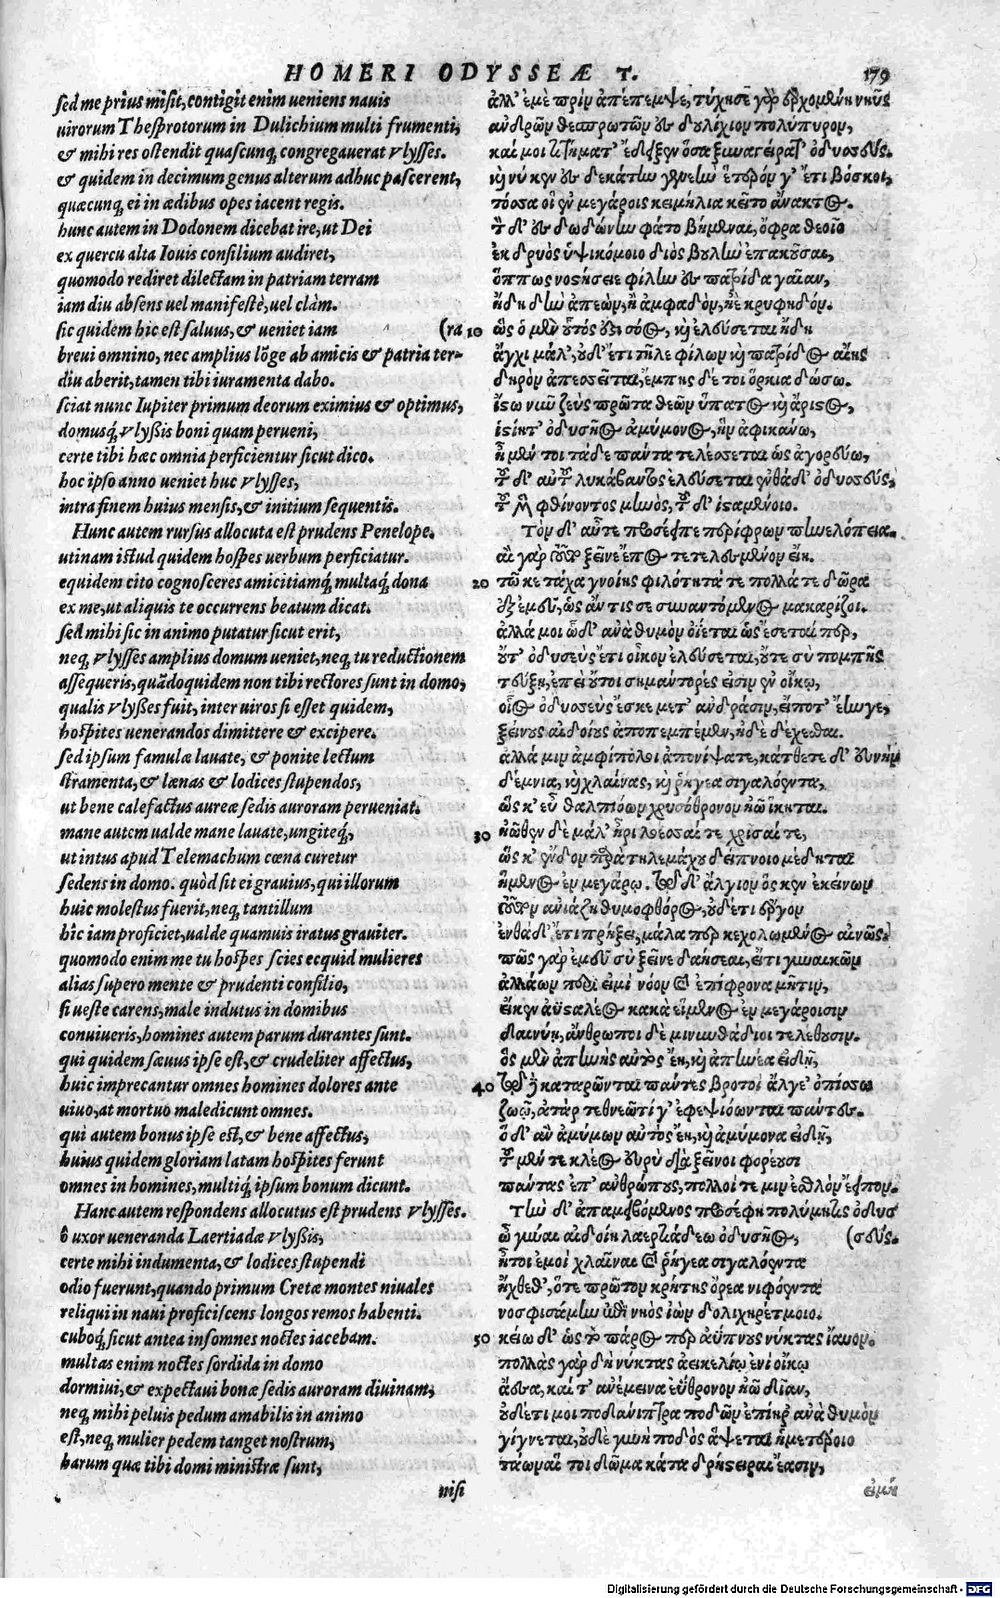 HOMERI ODYSSEÆ T. 179
sed me prius misit, contigit enim ueniens nauis
uirorum Thesprotorum in Dulichium multi frumenti;
& mihi res ostendit quascunq; congregauerat Vlysses.
& quidem in decimum genus alterum adhuc pascerent,
quæcunq; ei in ædibus opes iacent regis.
hunc autem in Dodonem dicebat ire, ut Dei
ex quercu alta Iouis consilium audiret,
quomodo rediret dilectam in patriam terram
iam diu absens uel manifestè, uel clàm.
sic quidem hic est saluus, & ueniet iam (ra
breui omnino, nec amplius lõge ab amicis & patria ter-
diu aberit, tamen tibi iuramenta dabo.
sciat nunc Iupiter primum deorum eximius & optimus,
domusq́; Vlyßis boni quam perueni,
certe tibi hæc omnia perficientur sicut dico.
hoc ipso anno ueniet huc Vlysses,
intra finem huius mensis, & initium sequentis.
Hunc autem rursus allocuta est prudens Penelope.
utinam istud quidem hospes uerbum perficiatur.
equidem cito cognosceres amicitiamq́; multaq́; dona
ex me, ut aliquis te occurrens beatum dicat.
sed mihi sic in animo putatur sicut erit,
neq; Vlysses amplius domum ueniet, neq; tu reductionem
assequeris, quãdoquidem non tibi rectores sunt in domo,
qualis Vlyßes fuit, inter uiros si esset quidem,
hospites uenerandos dimittere & excipere.
sed ipsum famulæ lauate, & ponite lectum
stramenta, & lænas & lodices stupendos,
ut bene calefactus aureæ sedis auroram perueniat.
mane autem ualde mane lauate, ungiteq́;,
ut intus apud Telemachum cœna curetur
sedens in domo. quòd sit ei grauius, qui illorum
huic molestus fuerit, neq; tantillum
hîc iam proficiet, ualde quamuis iratus grauiter.
quomodo enim me tu hospes scies ecquid mulieres
alias supero mente & prudenti consilio,
si ueste carens, male indutus in domibus
conuiueris, homines autem parum durantes sunt.
qui quidem sæuus ipse est, & crudeliter affectus,
huic imprecantur omnes homines dolores ante
uiuo, at mortuo maledicunt omnes.
qui autem bonus ipse est, & bene affectus,
huius quidem gloriam latam hospites ferunt
omnes in homines, multiq́; ipsum bonum dicunt.
Hanc autem respondens allocutus est prudens Vlysses.
ô uxor ueneranda Laertiadæ Vlyßis,
certe mihi indumenta, & lodices stupendi
odio fuerunt, quando primum Cretæ montes niuales
reliqui in naui proficiscens longos remos habenti.
cuboq́; sicut antea insomnes noctes iacebam.
multas enim noctes sordida in domo
dormiui, & expectaui bonæ sedis auroram diuinam,
neq; mihi peluis pedum amabilis in animo
est, neq; mulier pedem tanget nostrum,
harum quæ tibi domi ministræ sunt,
nisi
ἀλλ' ἐμὲ πρὶν ἀπέπεμψε, τύχησε γὰρ ἐρχομένη νηῦς
ἀνδρῶν θεσπρωτῶν ἐς δουλίχιον πολύπυρον,
καί μοι κτήματ' ἔδειξεν ὅσα ξυναγείρατ' ὀδυσσεύς.
καὶ νύ κεν ἐς δεκάτην γενεὴν ἕτερόν γ' ἔτι βόσκοι,
τόσσα οἱ ἐν μεγάροις κειμήλια κεῖτο ἄνακτος.
τὸν δ' ἐς δωδώνην φάτο βήμεναι, ὄφρα θεοῖο
ἐκ δρυὸς ὑψικόμοιο διὸς βουλὴν ἐπακούσαι,
ὅππως νοστήσειε φίλην ἐς πατρίδα γαῖαν,
ἤδη δὴν ἀπεὼν, ἢ ἀμφαδὸν, ἠὲ κρυφηδόν.
10 ὣς ὁ μὲν οὗτός ἐστι σόος, καὶ ἐλεύσεται ἤδη
ἄγχι μάλ', οὐδ' ἔτι τῆλε φίλων καὶ πατρίδος αἴης
δηρὸν ἀπεσσεῖται, ἔμπης δέ τοι ὅρκια δώσω.
ἴστω νῦν ζεὺς πρῶτα θεῶν ὕπατος καὶ ἄριστος,
ἱστίη τ' ὀδυσῆος ἀμύμονος, ἣν ἀφικάνω,
ἦ μέν τοι τάδε πάντα τελέσεται ὡς ἀγορεύω,
τοῦ δ' αὐτοῦ λυκάβαντος ἐλεύσεται ἐνθάδ' ὀδυσσεύς,
τοῦ μὲν φθίνοντος μηνὸς, τοῦ δ' ἱσταμένοιο.
Τὸν δ' αὖτε προσέειπε περίφρων πηνελόπεια.
αἲ γὰρ τοῦτο ξεῖνε ἔπος τετελεσμένον εἴη.
20 τῶ κε τάχα γνοίης φιλότητά τε πολλά τε δῶρα
ἐξ ἐμεῦ, ὡς ἄν τίς σε συναντόμενος μακαρίζοι.
ἀλλά μοι ὧδ' ἀνὰ θυμὸν ὀΐεται ὡς ἔσεταί περ,
οὔτ' ὀδυσεὺς ἔτι οἶκον ἐλεύσεται, οὔτε σὺ πομπῆς
τεύξῃ, ἐπεὶ οὔτοι σημάντορές εἰσιν ἐν οἴκῳ,
οἷος ὀδυσσεὺς ἔσκε μετ' ἀνδράσιν, εἴποτ' ἔην γε,
ξείνους αἰδοίους ἀποπεμπέμεν, ἠδὲ δέχεσθαι.
ἀλλά μιν ἀμφίπολοι ἀπονίψατε, κάτθετε δ' εὐνὴν
δέμνια, καὶ χλαίνας, καὶ ῥήγεα σιγαλόεντα,
ὥς κ' εὖ θαλπιόων χρυσόθρονον ἠῶ ἵκηται.
30 ἠῶθεν δὲ μάλ' ἦρι λοέσσαι τε χρῖσαί τε,
ὥς κ' ἔνδον παρὰ τηλεμάχῳ δείπνοιο μέδηται
ἥμενος ἐν μεγάρῳ. τῷ δ' ἄλγιον ὅς κεν ἐκείνων
τοῦτον ἀνιάζῃ θυμοφθόρος, οὐδέ τι ἔργον
ἐνθάδ' ἔτι πρήξει, μάλα περ κεχολωμένος αἰνῶς.
πῶς γὰρ ἐμεῦ σὺ ξεῖνε δαήσεαι, εἴ τι γυναικῶν
ἀλλάων περὶ εἰμὶ νόον καὶ ἐπίφρονα μῆτιν,
εἴ κεν ἀϋσταλέος κακὰ εἱμένος ἐν μεγάροισιν
δαινύῃ, ἄνθρωποι δὲ μινυνθάδιοι τελέθουσιν.
ὃς μὲν ἀπηνὴς αὐτὸς ἔῃ, καὶ ἀπηνέα εἰδῇ,
40 τῷ δὲ καταρῶνται πάντες βροτοὶ ἄλγε' ὀπίσσω
ζωῷ, ἀτὰρ τεθνεῶτί γ' ἐφεψιόωνται πάντες.
ὃ δ' ἂν ἀμύμων αὐτὸς ἔῃ, καὶ ἀμύμονα εἰδῇ,
τοῦ μέν τε κλέος εὐρὺ διὰ ξεῖνοι φορέουσι
πάντας ἐπ' ἀνθρώπους, πολλοί τέ μιν ἐσθλὸν ἔειπον.
Τὴν δ' ἀπαμειβόμενος προσέφη πολύμητις ὀδυσ
ὦ γύναι αἰδοίη λαερτιάδεω ὀδυσῆος, (σεύς.
ἤτοι ἐμοὶ χλαῖναι καὶ ῥήγεα σιγαλόεντα
ἤχθεθ', ὅτε πρῶτον κρήτης ὄρεα νιφόεντα
νοσφισάμην ἐπὶ νηὸς ἰὼν δολιχηρέτμοιο.
50 κείω δ' ὡς τὸ πάρος περ ἀΰπνους νύκτας ἴαυον.
πολλὰς γὰρ δὴ νύκτας ἀεικελίῳ ἐνὶ οἴκῳ
ἄεσα, καί τ' ἀνέμεινα ἐΰθρονον ἠῶ δῖαν,
οὐδέ τί μοι ποδάνιπτρα ποδῶν ἐπίηρ' ἀνὰ θυμὸν
γίγνεται, οὐδὲ γυνὴ ποδὸς ἅψεται ἡμετέροιο
τάων αἵ τοι δῶμα κάτα δρήστειραι ἔασιν,
εἰ μή
Digitalisierung gefördert durch die Deutsche Forschungsgemeinschaft - DFG